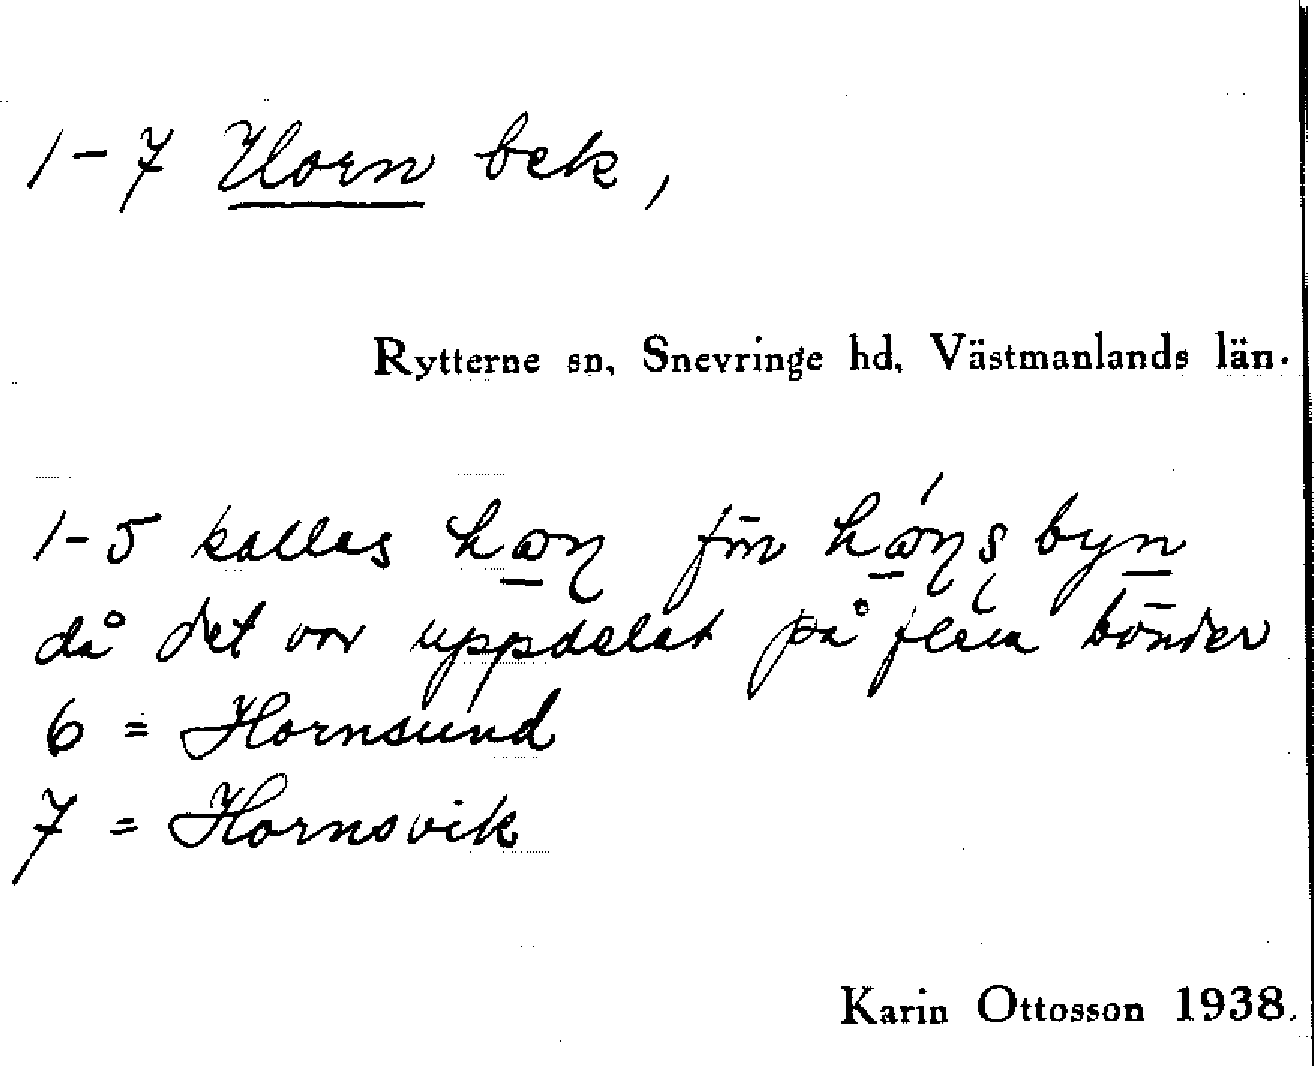 1-7 Horn bek,
Rytterne sn, Snevringe hd, Västmanlands län.
1-5 kallas förr byn
då det var uppdelat på flera bönder
6 = Hornsund
7 = Hornsvik
Karin Ottosson 1938.